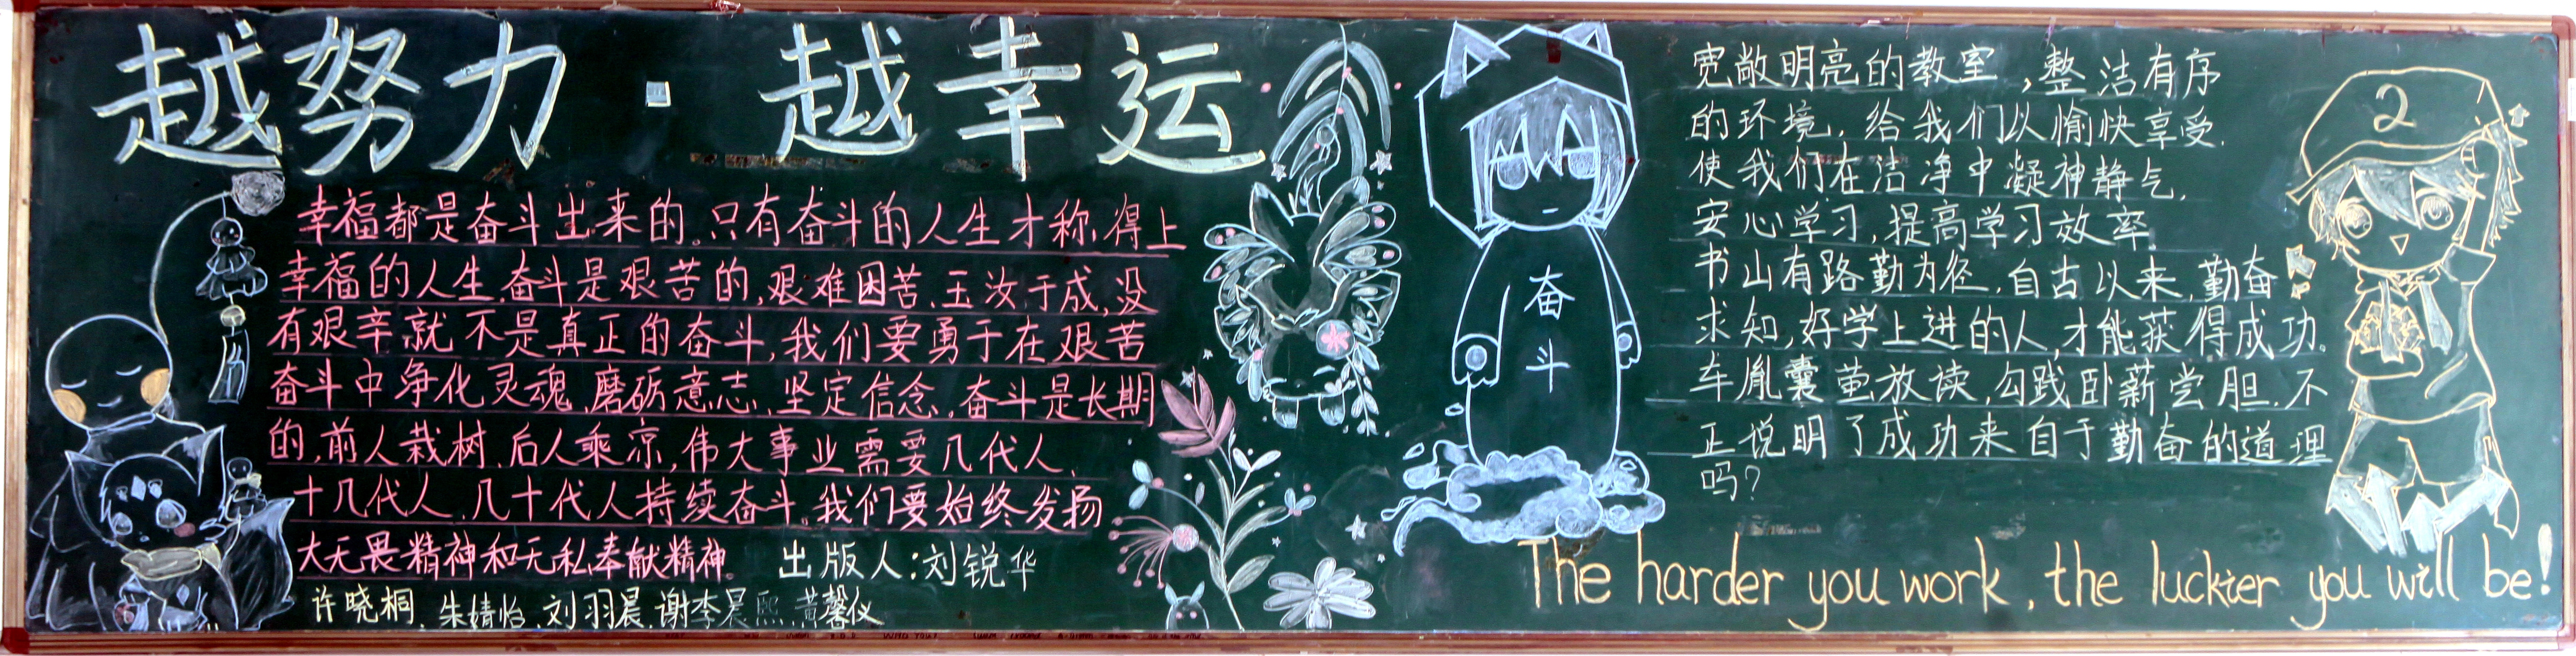 越努力·越幸运
幸福都是奋斗出来的。只有奋斗的人生才称得上
幸福的人生。奋斗是艰苦的,艰难困苦、玉汝于成,没
有艰辛就不是真正的奋斗,我们要勇于在艰苦
奋斗中净化灵魂、磨砺意志、坚定信念。奋斗是长期
的,前人栽树、后人乘凉,伟大事业需要几代人、
十几代人、几十代人持续奋斗。我们要始终发扬
大无畏精神和无私奉献精神。
出版人:刘锐华
许晓桐、朱婧怡、刘羽晨、谢李晨熙、黄馨仪
奋
斗
宽敞明亮的教室,整洁有序
的环境,给我们以愉快享受.
使我们在洁净中凝神静气,
安心学习,提高学习效率
书山有路勤为径,自古以来,勤奋
求知,好学上进的人,才能获得成功。
车胤囊萤放读,勾践卧薪尝胆,不
正说明了成功来自于勤奋的道理
吗?
2
The harder you work, the luckier you will be!